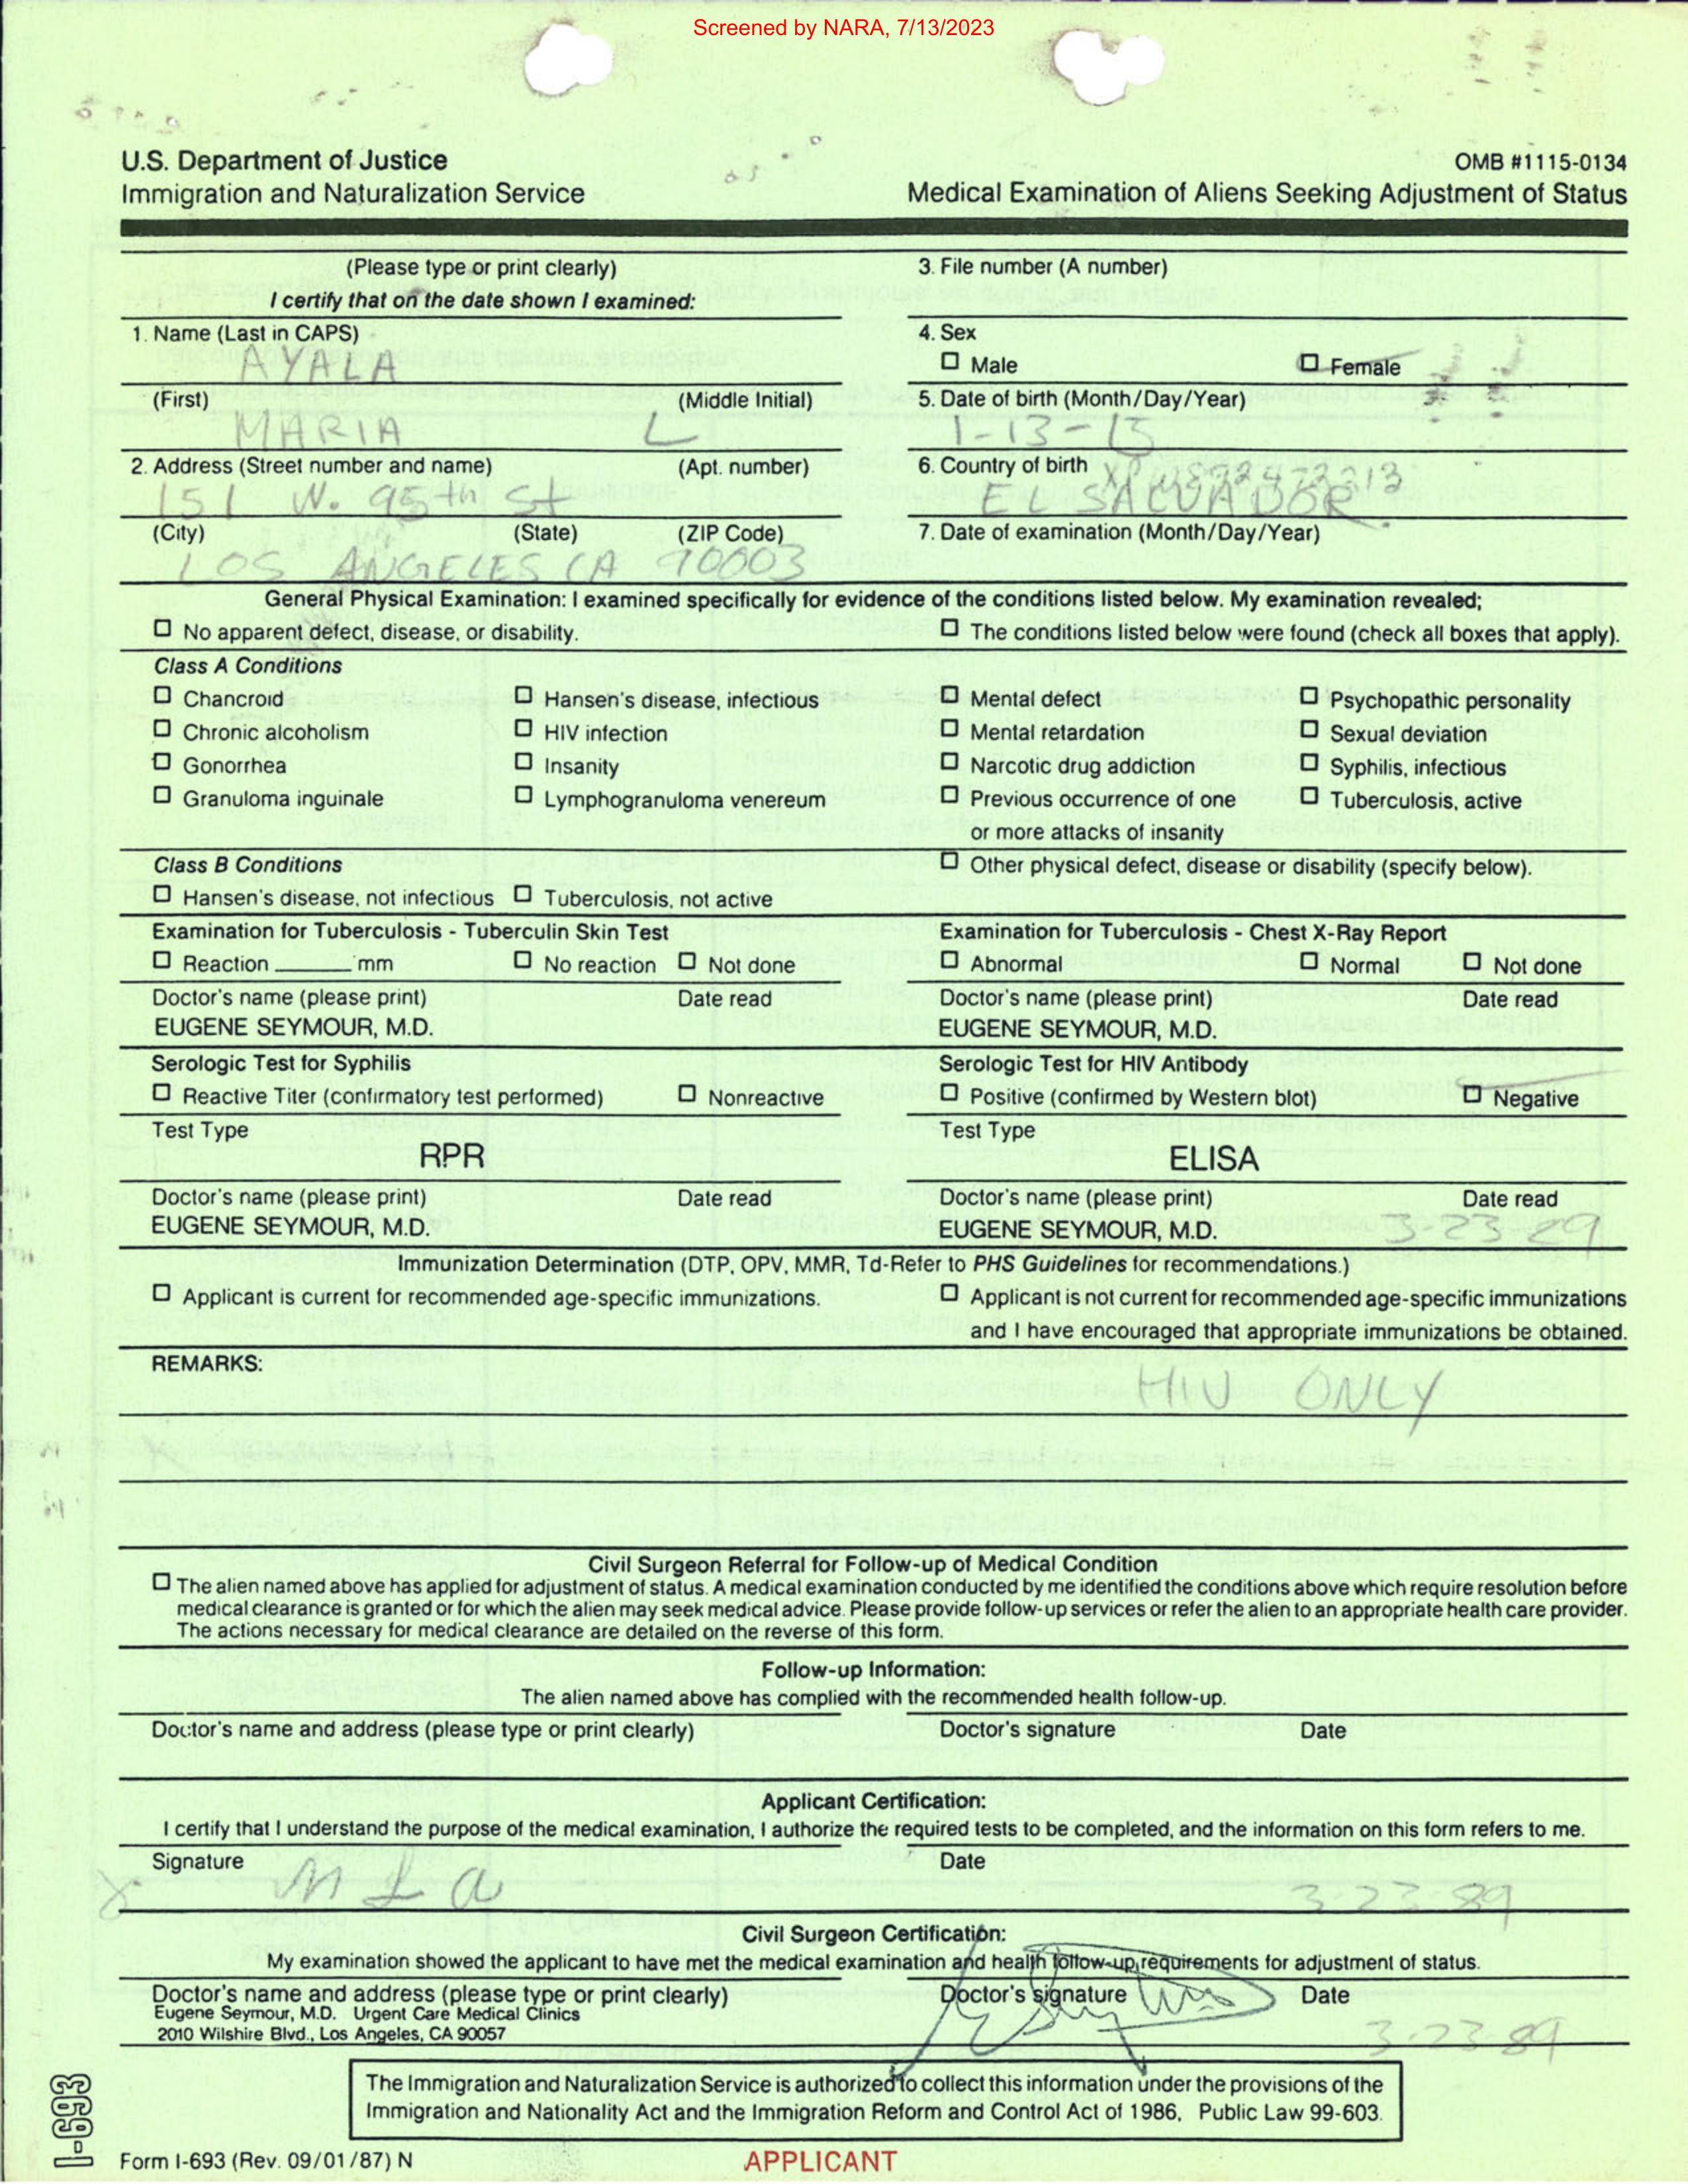 Screened by NARA, 7/13/2023
U.S. Department of Justice
Immigration and Naturalization Service
OMB #1115-0134
Medical Examination of Aliens Seeking Adjustment of Status
(Please type or print clearly)
I certify that on the date shown I examined:
3. File number (A number)
1. Name (Last in CAPS)
AYALA
4. Sex
☐ Male ☐ Female
(First) (Middle Initial)
MARIA L
5. Date of birth (Month/Day/Year)
1-13-15
2. Address (Street number and name) (Apt. number)
151 W. 95th St
6. Country of birth
EL SALVADOR
(City) (State) (ZIP Code)
LOS ANGELES CA 90003
7. Date of examination (Month/Day/Year)
General Physical Examination: I examined specifically for evidence of the conditions listed below. My examination revealed;
☐ No apparent defect, disease, or disability. ☐ The conditions listed below were found (check all boxes that apply).
Class A Conditions
☐ Chancroid ☐ Hansen's disease, infectious ☐ Mental defect ☐ Psychopathic personality
☐ Chronic alcoholism ☐ HIV infection ☐ Mental retardation ☐ Sexual deviation
☐ Gonorrhea ☐ Insanity ☐ Narcotic drug addiction ☐ Syphilis, infectious
☐ Granuloma inguinale ☐ Lymphogranuloma venereum ☐ Previous occurrence of one ☐ Tuberculosis, active
or more attacks of insanity
Class B Conditions ☐ Other physical defect, disease or disability (specify below).
☐ Hansen's disease, not infectious ☐ Tuberculosis, not active
Examination for Tuberculosis - Tuberculin Skin Test
☐ Reaction ______ mm ☐ No reaction ☐ Not done
Doctor's name (please print) Date read
EUGENE SEYMOUR, M.D.
Examination for Tuberculosis - Chest X-Ray Report
☐ Abnormal ☐ Normal ☐ Not done
Doctor's name (please print) Date read
EUGENE SEYMOUR, M.D.
Serologic Test for Syphilis
☐ Reactive Titer (confirmatory test performed) ☐ Nonreactive
Test Type
RPR
Doctor's name (please print) Date read
EUGENE SEYMOUR, M.D.
Serologic Test for HIV Antibody
☐ Positive (confirmed by Western blot) ☐ Negative
Test Type
ELISA
Doctor's name (please print) Date read
EUGENE SEYMOUR, M.D. 3-23-89
Immunization Determination (DTP, OPV, MMR, Td-Refer to PHS Guidelines for recommendations.)
☐ Applicant is current for recommended age-specific immunizations. ☐ Applicant is not current for recommended age-specific immunizations
and I have encouraged that appropriate immunizations be obtained.
REMARKS:
HIV ONLY
Civil Surgeon Referral for Follow-up of Medical Condition
☐ The alien named above has applied for adjustment of status. A medical examination conducted by me identified the conditions above which require resolution before
medical clearance is granted or for which the alien may seek medical advice. Please provide follow-up services or refer the alien to an appropriate health care provider.
The actions necessary for medical clearance are detailed on the reverse of this form.
Follow-up Information:
The alien named above has complied with the recommended health follow-up.
Doctor's name and address (please type or print clearly) Doctor's signature Date
Applicant Certification:
I certify that I understand the purpose of the medical examination, I authorize the required tests to be completed, and the information on this form refers to me.
Signature Date
X M L A 3-23-89
Civil Surgeon Certification:
My examination showed the applicant to have met the medical examination and health follow-up requirements for adjustment of status.
Doctor's name and address (please type or print clearly) Doctor's signature Date
Eugene Seymour, M.D. Urgent Care Medical Clinics
2010 Wilshire Blvd., Los Angeles, CA 90057
3-23-89
The Immigration and Naturalization Service is authorized to collect this information under the provisions of the
Immigration and Nationality Act and the Immigration Reform and Control Act of 1986, Public Law 99-603.
I-693
Form I-693 (Rev. 09/01/87) N
APPLICANT